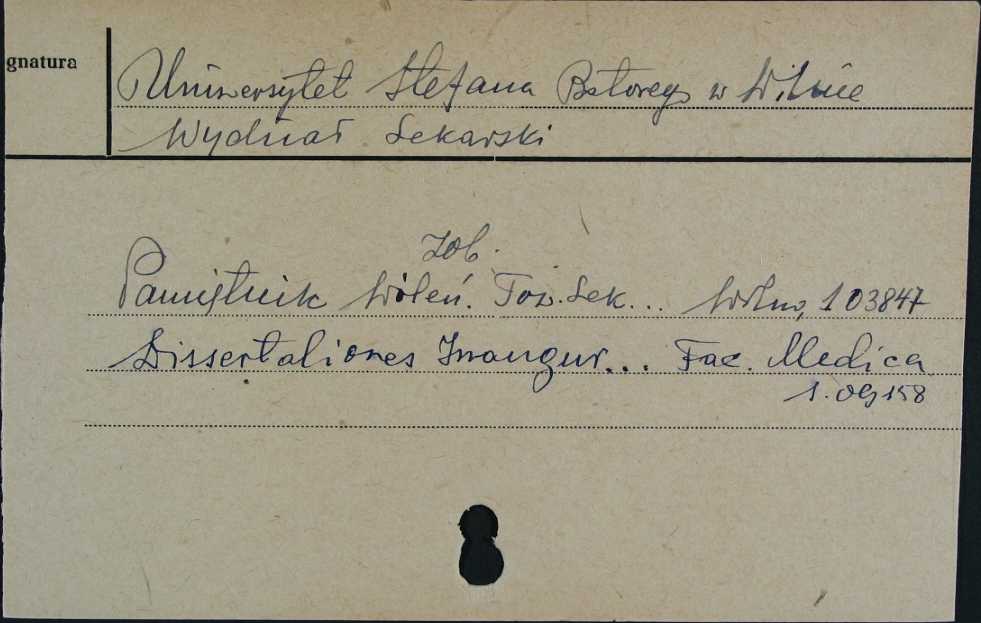 gnatura
Uniwersytet Stefana Batorego w Wilnie
Wydział Lekarski
Zob.
Pamiętnik Wileń. Tow. Lek... Wilno, 103847
Dissertationes Inaugur... Fac. Medica
1.